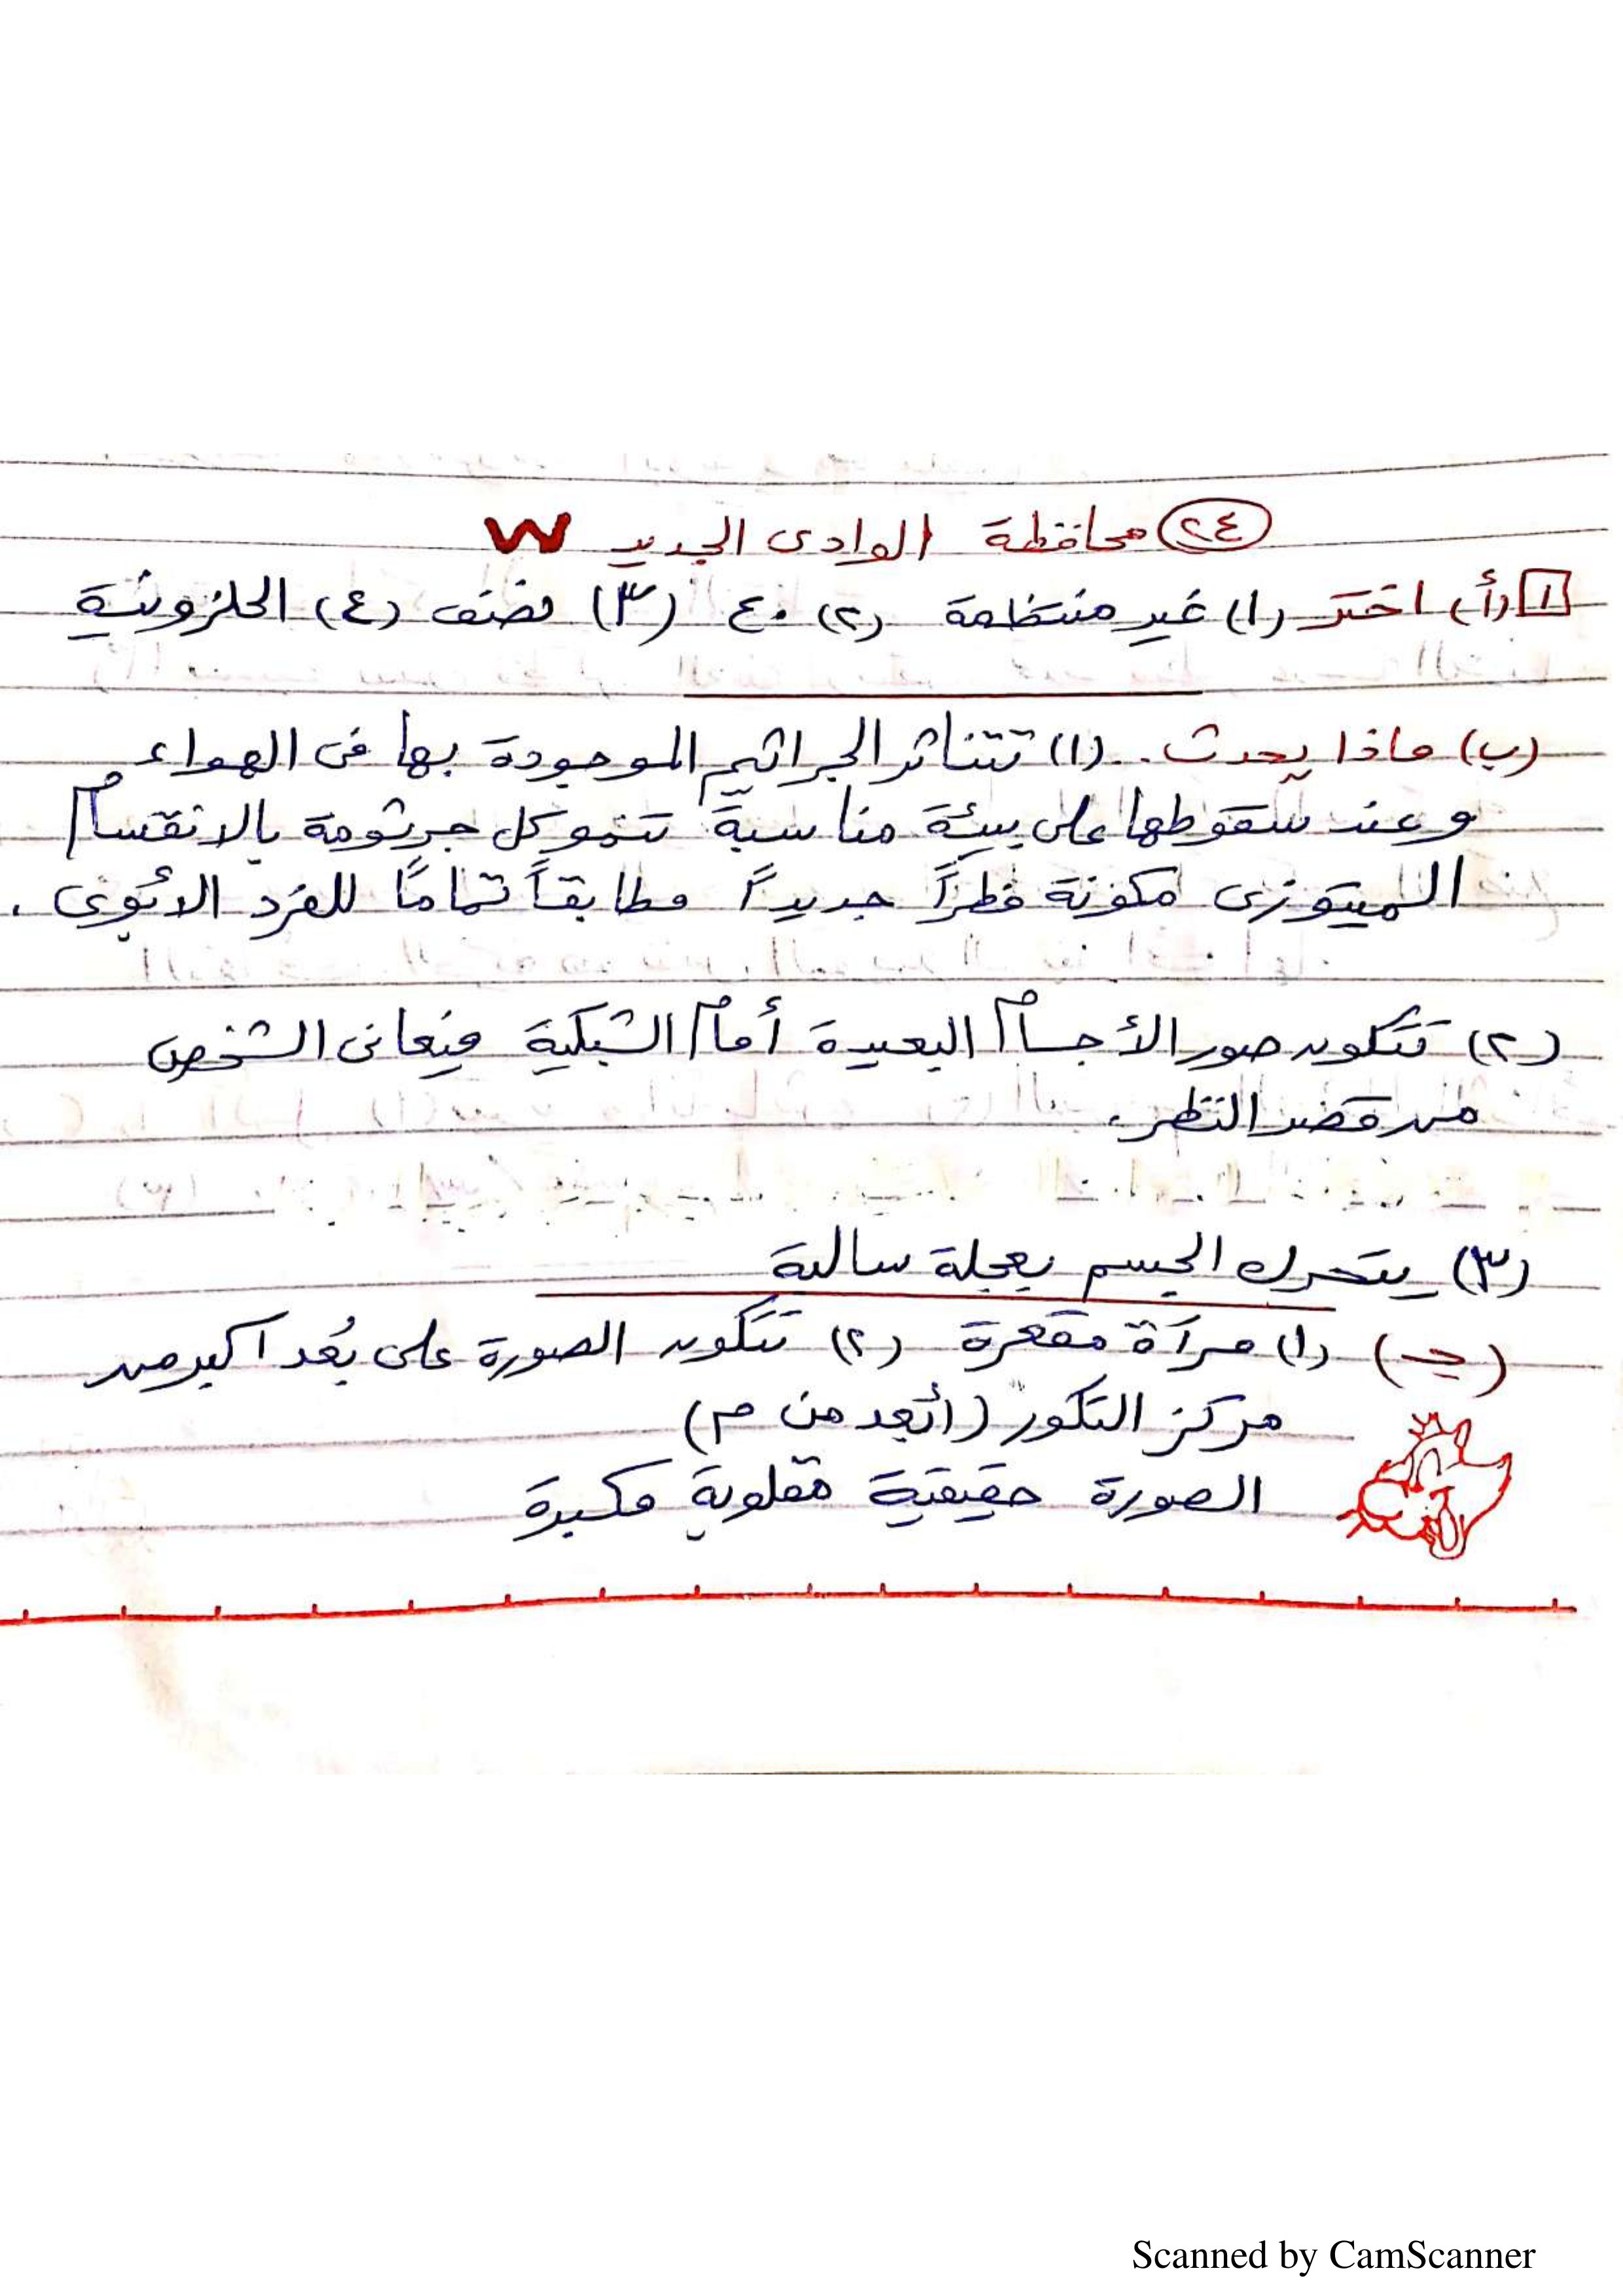 ٢٤ محافظة الوادى الجديد
١ (أ) اختر (١) غير منتظمة (٢) ٤٠ (٣) نصف (٤) الحلزونية
(ب) ماذا يحدث .. (١) تتناثر الجراثيم الموجودة بها فى الهواء
وعند سقوطها على بيئة مناسبة تنمو كل جرثومة بالانقسام
الميتوزى مكونة فطراً جديداً مطابقاً تمامًا للفرد الأبوى .
(٢) تتكون صور الأجسام البعيدة أمام الشبكية فيعانى الشخص
من قصر النظر.
(٣) يتحرك الجسم بعجلة سالبة
(جـ) (١) مرآة مقعرة (٢) تتكون الصورة على بُعد اكبر من
مركز التكور (أبعد من م)
الصورة حقيقية مقلوبة مكبرة
Scanned by CamScanner